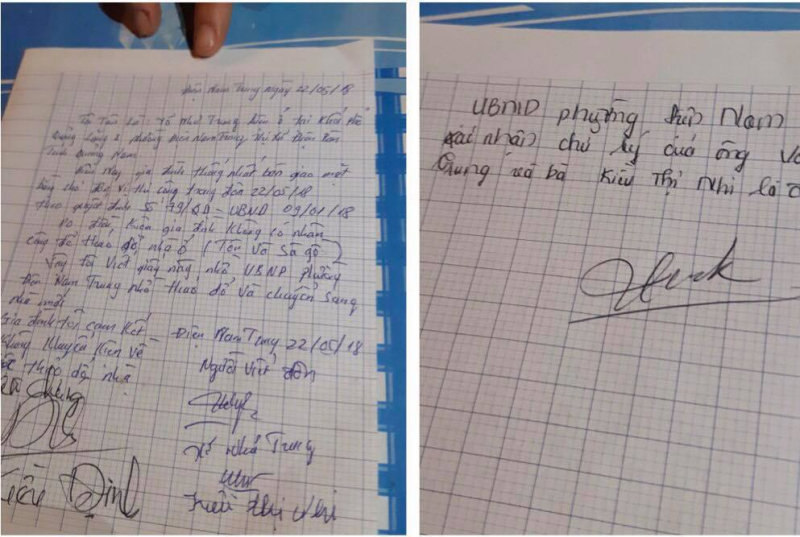 Điện Nam Trung Ngày 22/05/18
Tôi Tên Là: Võ Như Trung hiện ở tại Khối Phố
Quảng Lăng 2, phường Điện Nam Trung Thị Xã Điện Bàn
Tỉnh Quảng Nam
Hiện Nay gia đình thống nhất bàn giao mặt
bằng cho đơn vị thi công trong đến 22/05/18
theo quyết định Số 79/QĐ-UBND 09/01/18
Do điều kiện gia đình Không có nhân
công để tháo dỡ nhà ở (Tôn Và Sà gồ)
Vậy tôi Viết giấy này nhờ UBND phường
Điện Nam Trung nhờ tháo dỡ và chuyển Sang
nhà mới
Gia đình tôi cam Kết
Không Khuyếu Kiện Về
tháo dỡ nhà
Điện Nam Trung 22/05/18
Người Viết đơn
Võ Như Trung
Kiều Thị Nhi
Định
UBND phường Điện Nam
xác nhận chữ ký của ông Võ
Trung và bà Kiều Thị Nhi là